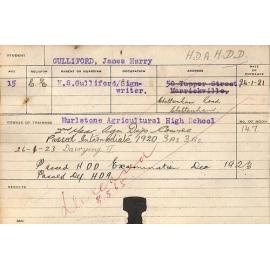 STUDENT
GULLIFORD, James Harry H.D.A H.D.D
AGE RELIGION PARENT OR GUARDIAN OCCUPATION ADDRESS DATE OF ENTRANCE
15 C/E H.S.Gulliford/Sign-writer. 50 Tupper Street Marrickville. 24-1-21
Cheltenham Road,
Cheltenham
COURSE OF TRAINING Hurlstone Agricultural High School NO. OF BOOK
2nd Year Agr Dip Course 147
Passed Intermediate 1920 3As 3Bs
26-8-23 Dairying II
Passed H D D Examination Dec 1923
Passed Dip HDA
8.5.25